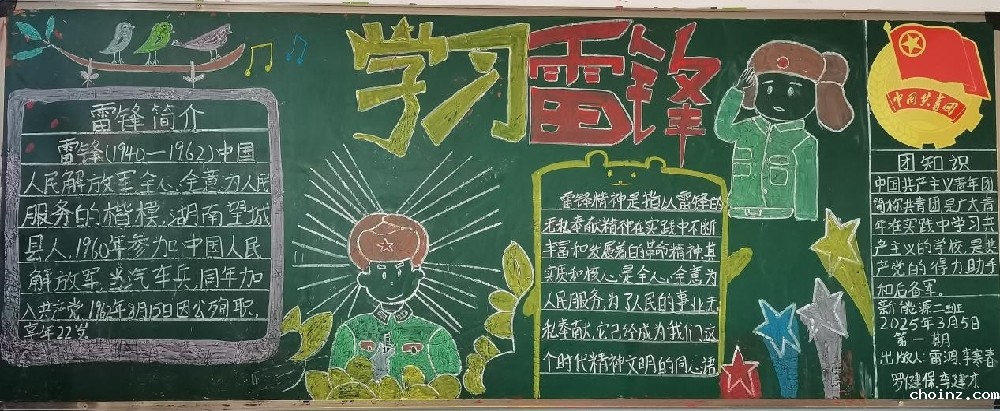 学习雷锋
雷锋简介
雷锋(1940—1962)中国
人民解放军全心、全意为人民
服务的楷模,湖南望城
县人,1960年参加中国人民
解放军,当汽车兵,同年加
入共产党,1962年8月15日因公殉职,
享年22岁
雷锋精神是指以雷锋的
无私奉献精神在实践中不断
丰富和发展着的革命精神,其
实质和核心是全心、全意为
人民服务,为了人民的事业无
私奉献,它已经成为我们这
个时代精神文明的同心语
中国共青团
团知识
中国共产主义青年团
简称共青团是广大青
年在实践中学习共
产主义的学校,是共
产党的得力助手
和后备军。
新能源二班
2025年3月5日
第一期
出版人:雷鸿,李寒春
罗健保,李建才
choinz.com